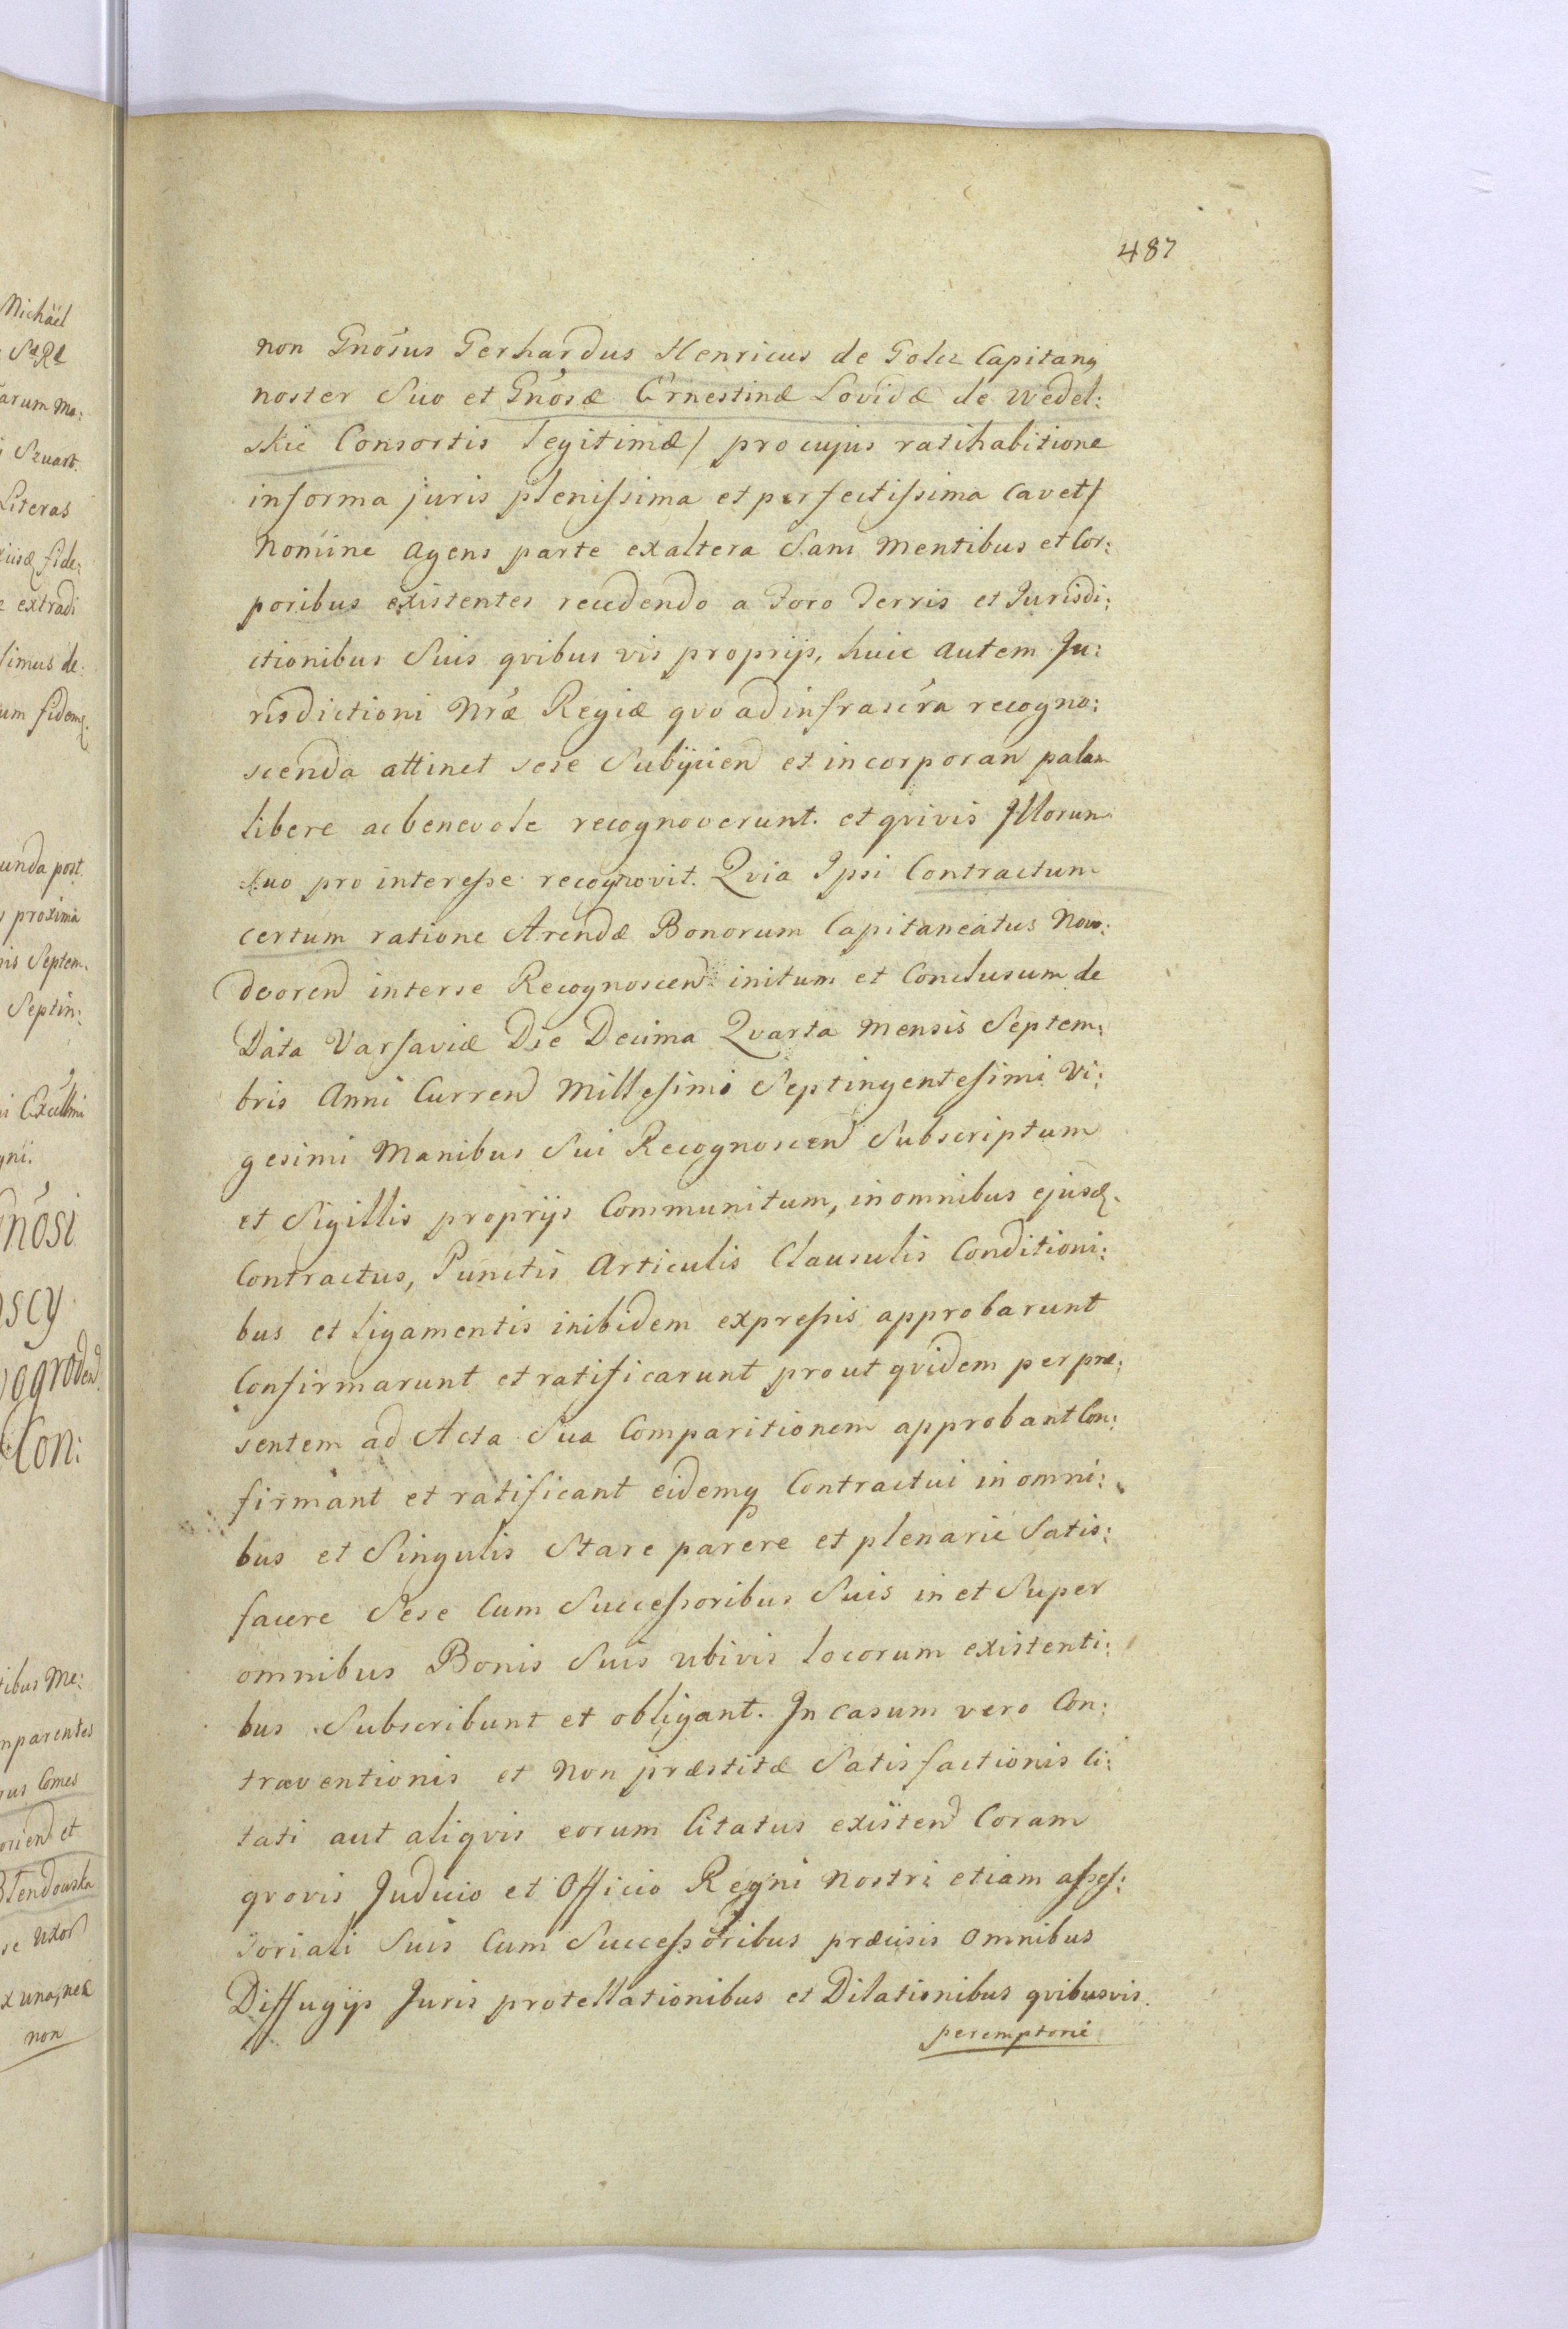 487
non Gnosus Gerhardus Henricus de Goltz Capitang
noster Suo et Gnosæ Ernestinæ Lovidæ de Wedel:
skie Consortis legitimæ/ pro cujus ratihabitione
in forma juris plenissima et perfectissima cavet/
Nomine agens parte ex altera Sani Mentibus et Cor:
poribus existentes recedendo a Foro Terris et Jurisdi:
ctionibus Suis qvibus vis proprijs, huic autem Ju:
risdictioni Nræ Regiæ qvo ad infrascra recogno:
scenda attinet sese Subijcien et incorporan palam
libere ac benevole recognoverunt. et qvivis Illorum
suo pro interesse recognovit. Qvia Ipsi Contractum
certum ratione Arendæ Bonorum Capitaneatus Novo:
dvoren inter se Recognoscen initum et Conclusum de
Data Varsaviæ Die Decima Qvarta Mensis Septem:
bris Anni Curren Millesimi Septingentesimi Vi:
gesimi Manibus Sui Recognoscen Subscriptum
et Sigillis proprijs Communitum, in omnibus ejusd.
Contractus, Punctis Articulis Clausulis Conditioni:
bus et ligamentis inibidem expressis approbarunt
Confirmarunt et ratificarunt prout qvidem per præ:
sentem ad Acta Sua Comparitionem approbant Con:
firmant et ratificant eidemq Contractui in omni:
bus et Singulis Stare parere et plenarie Satis:
facere Sese Cum Successoribus Suis in et Super
omnibus Bonis Suis ubivis locorum existenti:
bus Subscribunt et obligant. In casum vero Con:
traventionis et Non præstitæ Satisfactionis Ci:
tati aut aliqvis eorum Citatus existen Coram
qvovis Judicio et Officio Regni Nostri etiam asses:
soriali Suis Cum Successoribus præcisis omnibus
Diffugijs Juris protellationibus et Dilationibus qvibusvis
peremptorie
Michäel
arum Ma:
Szuart.
Literas
extradi
simus de
um fidem
unda post
proxima
nis Septem.
Septin:
Excellmi
gni.
Gnosi
scy
vogroden
Con:
tibus Me:
mparentes
Comes
et
Blendowska
Uxor
ex una, nec
non